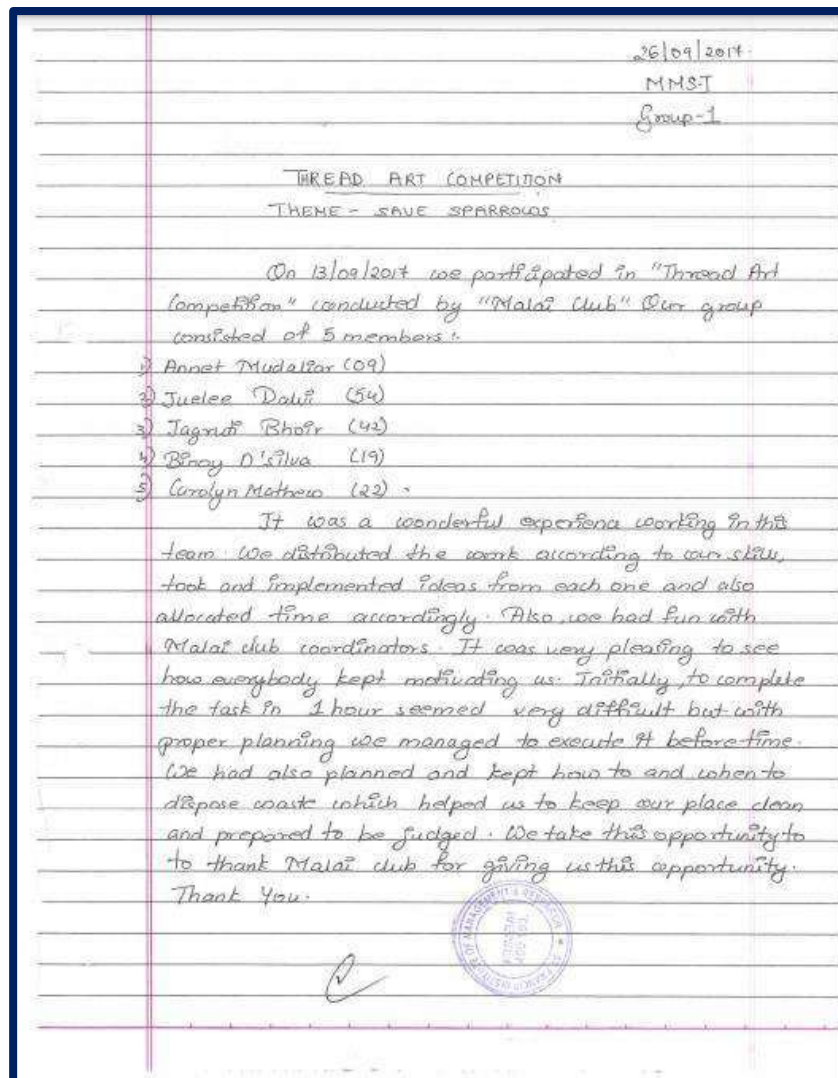 26/09/2017.
MMS-I
Group-1
THREAD ART COMPETITION
THEME - SAVE SPARROWS
On 13/09/2017 we participated in "Thread Art
Competition" conducted by "Malai Club" Our group
consisted of 5 members :.
1) Annet Mudaliar (09)
2) Juelee Dalvi (54)
3) Jagruti Bhoir (42)
4) Binoy D'silva (19)
5) Carolyn Mathew (22) .
It was a wonderful experienc working in this
team. We distributed the work according to our skill,
took and implemented ideas from each one and also
allocated time accordingly. Also, we had fun with
Malai club coordinators. It was very pleasing to see
how everybody kept motivating us. Initially, to complete
the task in 1 hour seemed very difficult but with
proper planning we managed to execute it before-time.
We had also planned and kept how to and when to
dispose waste which helped us to keep our place clean
and prepared to be judged. We take this opportunity to
to thank Malai club for giving us this opportunity.
Thank You.
INSTITUTE OF MANAGEMENT & RESEARCH